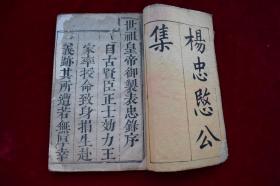 楊忠愍公
集
世祖皇帝御製表忠錄序
自古賢臣正士効力王
家率授命致身捐生赴
義跡其所遭若無厚幸